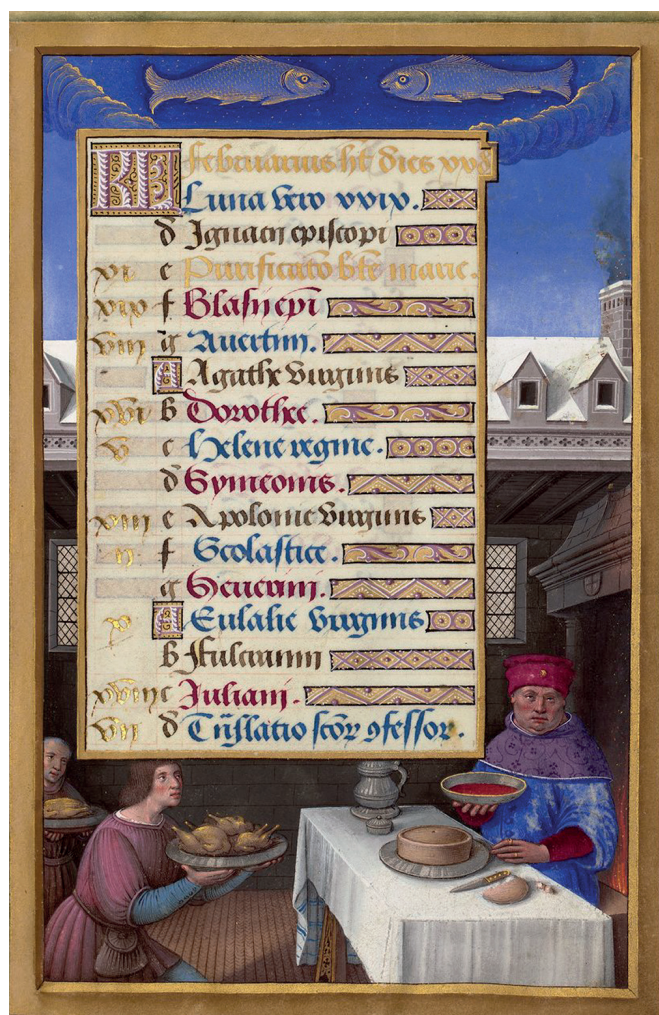 KL Februarius ht dies xxviii
Luna vero xxix.
d Ignacii episcopi
xi e Purificatio bte marie.
xix f Blasii epi
viii g Auertini.
A Agathe virginis
xvi b Dorothee.
v c Helene regine.
d Symeonis.
xiii e Apolonie virginis
ii f Scolastice.
g Seueriani.
x A Eulalie virginis
b Fulcranni
xviii c Iuliani.
vii d Tnslatio scor 9fessor.